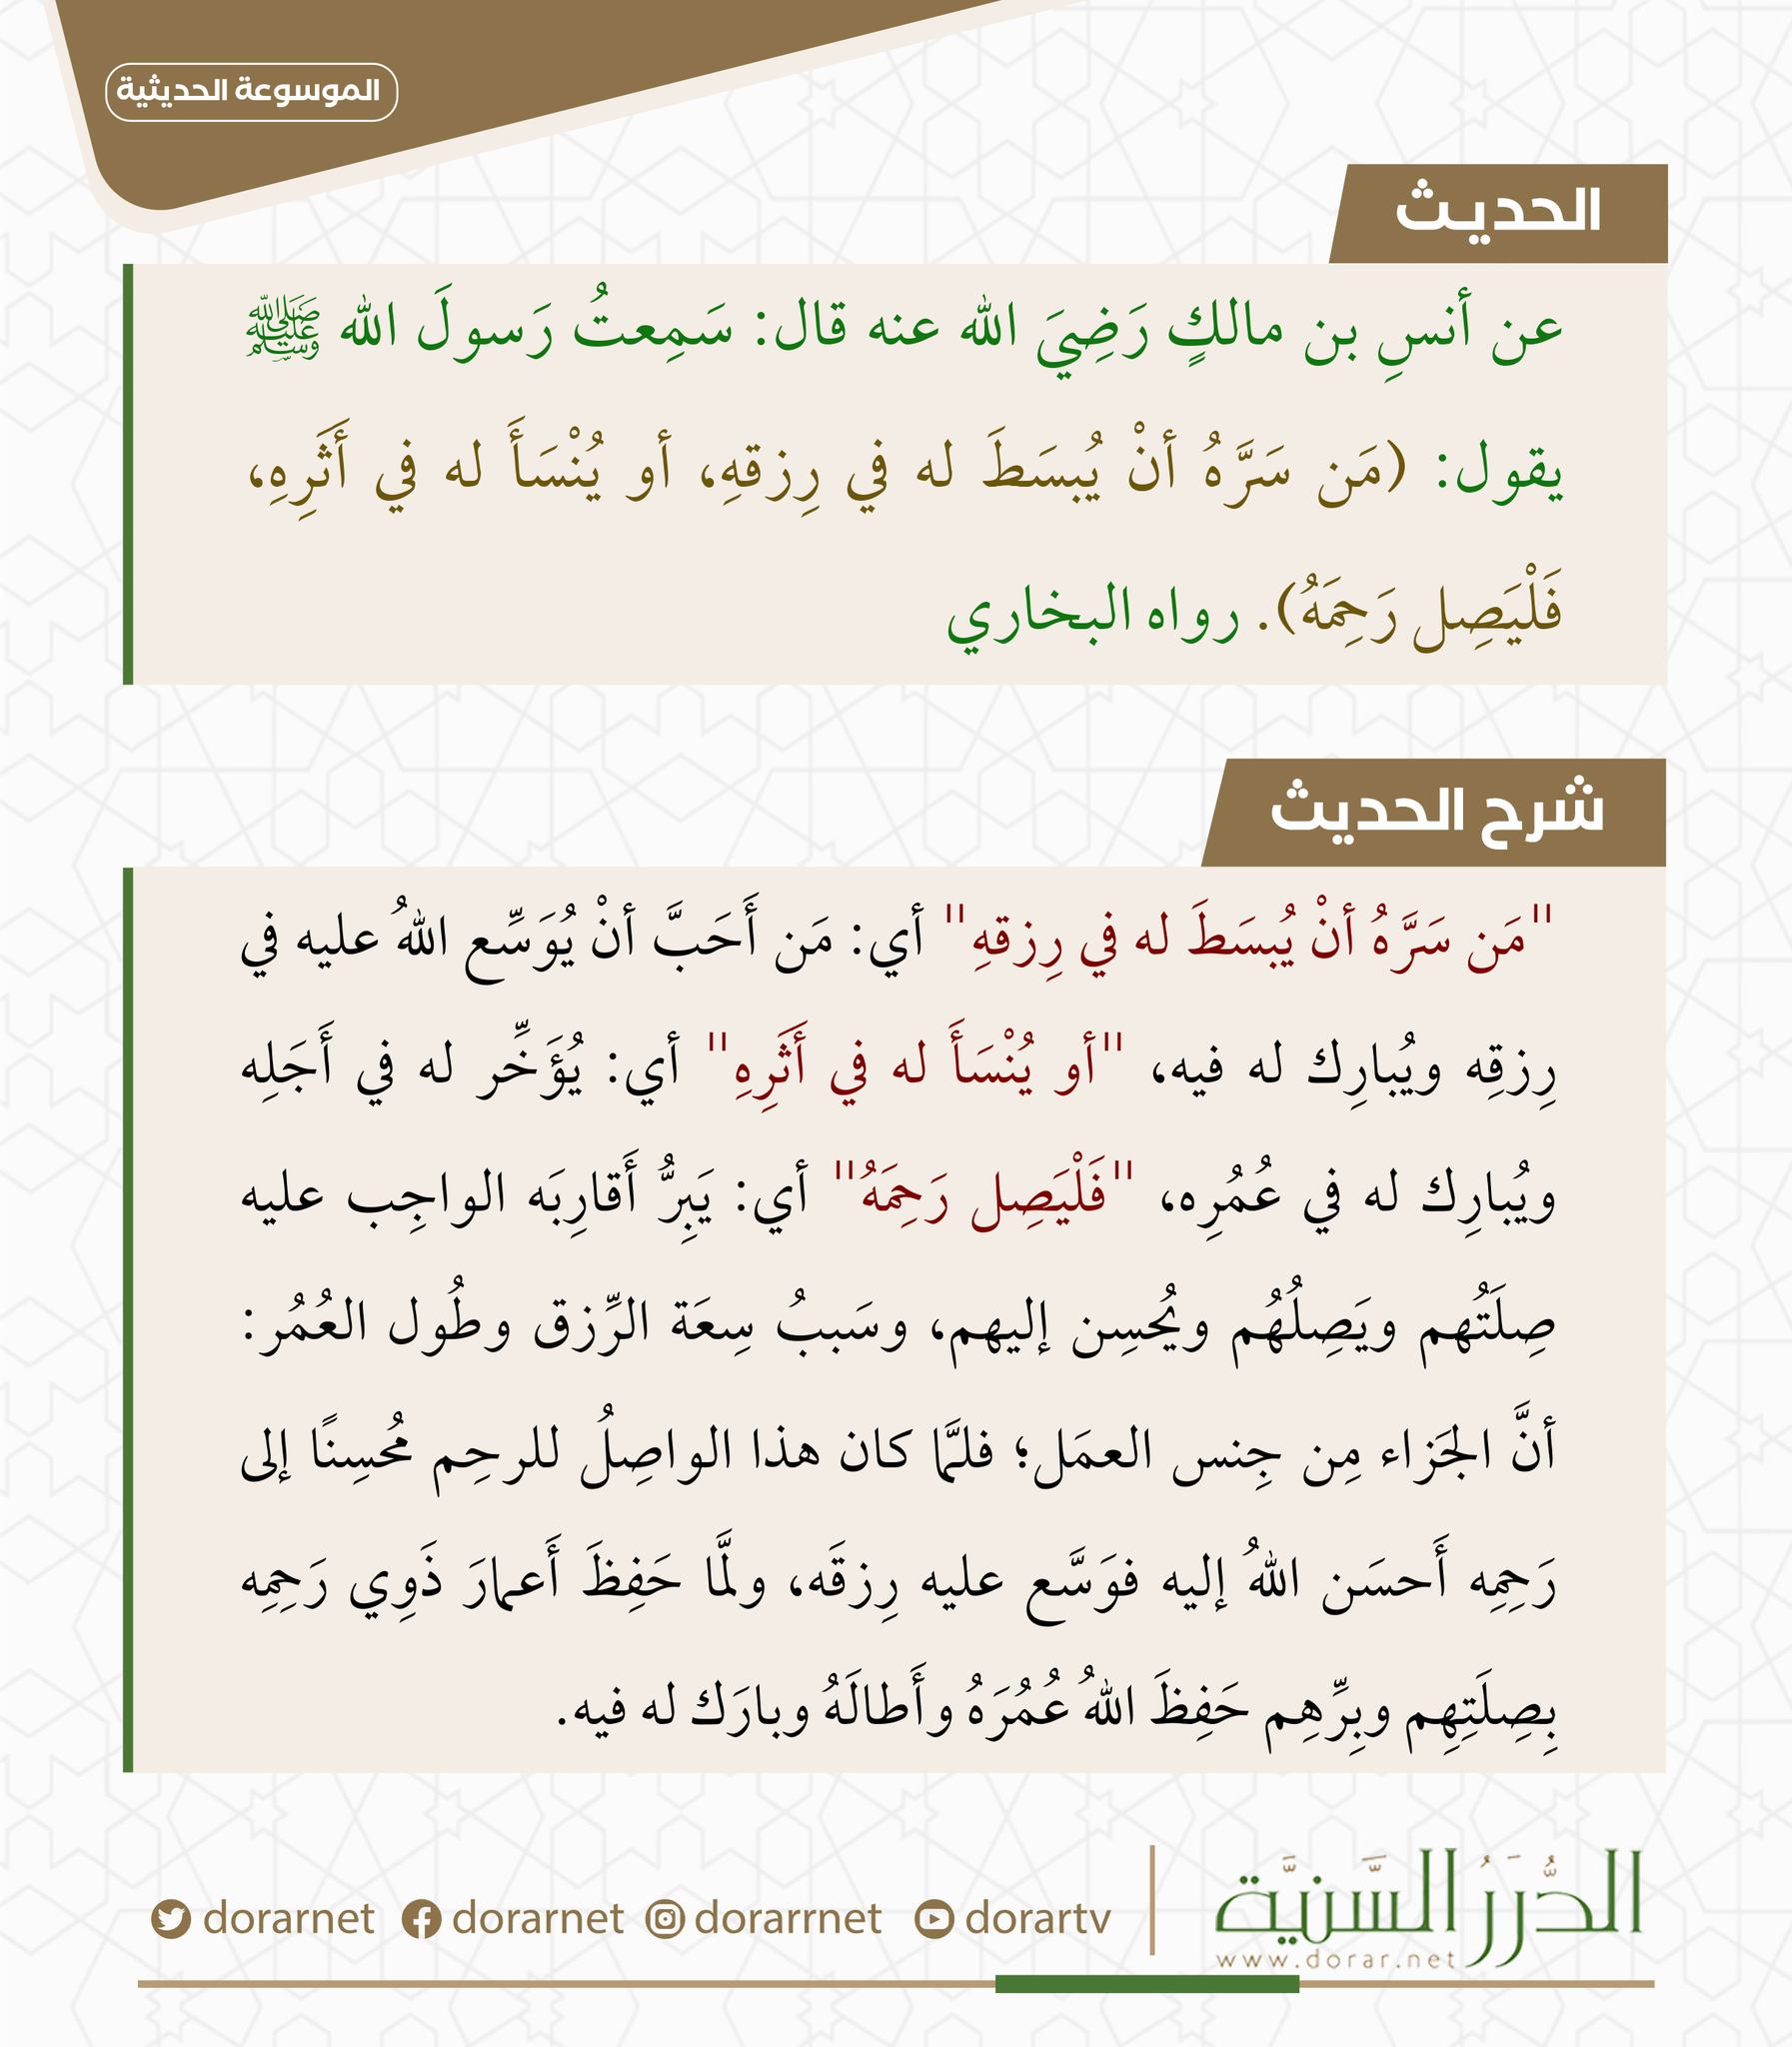 الموسوعة الحديثية
الحديث
عن أنسِ بن مالكٍ رَضِيَ الله عنه قال: سَمِعتُ رَسولَ الله ﷺ
يقول: (مَن سَرَّهُ أنْ يُبسَطَ له في رِزقهِ، أو يُنْسَأَ له في أَثَرِهِ،
فَلْيَصِل رَحِمَهُ). رواه البخاري
شرح الحديث
"مَن سَرَّهُ أنْ يُبسَطَ له في رِزقهِ" أي: مَن أَحَبَّ أنْ يُوَسِّع اللهُ عليه في
رِزقِه ويُبارِك له فيه، "أو يُنْسَأَ له في أَثَرِهِ" أي: يُؤَخِّر له في أَجَلِه
ويُبارِك له في عُمُرِه، "فَلْيَصِل رَحِمَهُ" أي: يَبِرُّ أَقارِبَه الواجِب عليه
صِلَتُهم ويَصِلُهُم ويُحسِن إليهم، وسَببُ سِعَة الرِّزق وطُول العُمُر:
أنَّ الجَزاء مِن جِنس العمَل؛ فلمَّا كان هذا الواصِلُ للرحِم مُحسِنًا إلى
رَحِمِه أَحسَن اللهُ إليه فوَسَّع عليه رِزقَه، ولمَّا حَفِظَ أَعمارَ ذَوِي رَحِمِه
بِصِلَتِهِم وبِرِّهِم حَفِظَ اللهُ عُمُرَهُ وأَطالَهُ وبارَك له فيه.
الدُّرَرُ السَّنيَّة
www.dorar.net
dorarnet dorarnet dorarrnet dorartv